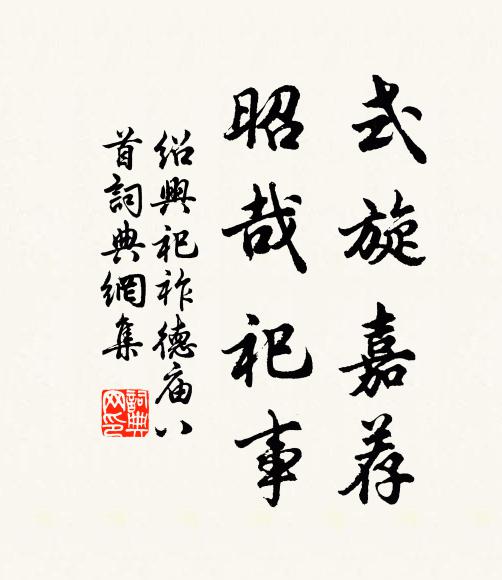 式旋嘉荐
昭哉祀事
绍興祀祚德庙八
首詞典網集
詞典
网印